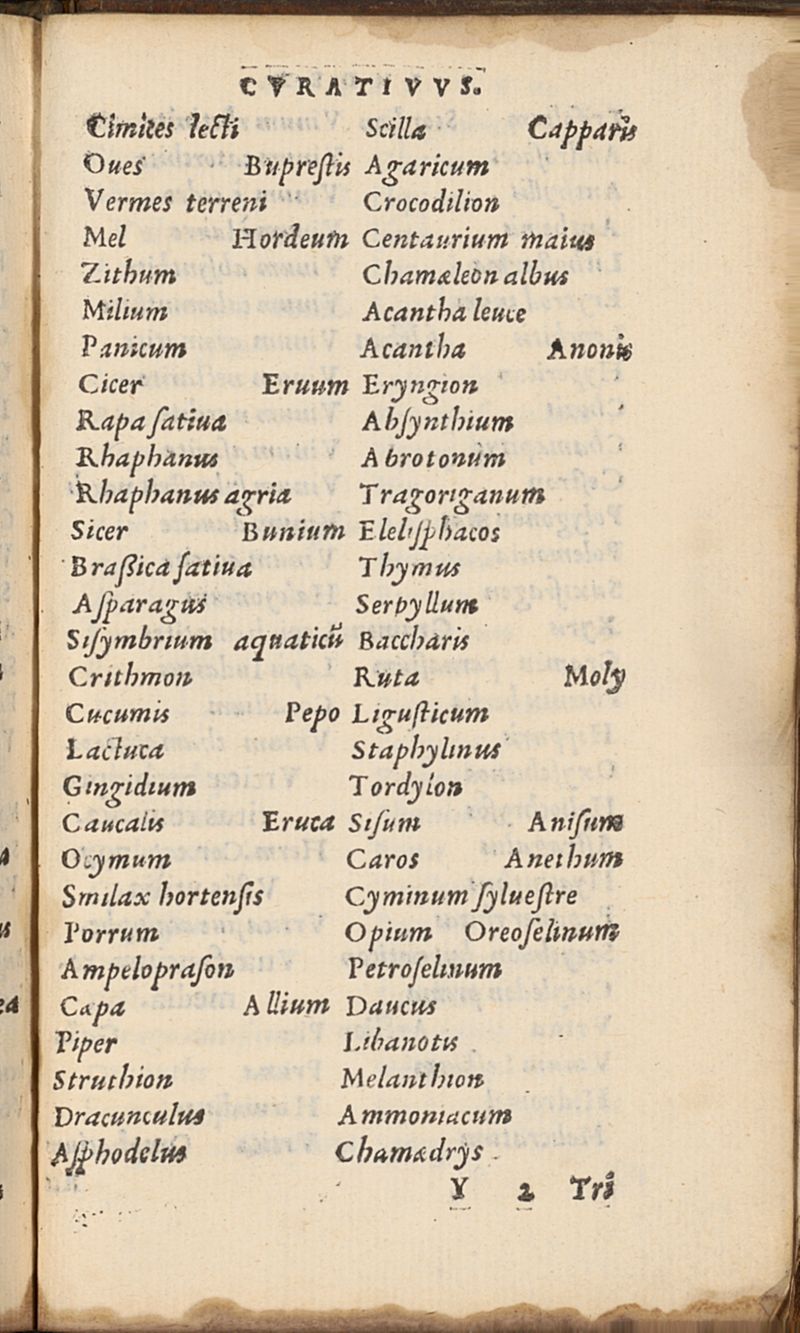 CVRATIVVS.
Cimites lecti
Oues Bupreſtis
Vermes terreni
Mel Hordeum
Zithum
Milium
Panicum
Cicer Eruum
Rapa ſatiua
Rhaphanus
Rhaphanus agria
Sicer Bunium
Braſsica ſatiua
Aſparagus
Siſymbrium aquaticū
Crithmon
Cucumis Pepo
Lactuca
Gingidium
Caucalis Eruca
Ocymum
Smilax hortenſis
Porrum
Ampelopraſon
Capa Allium
Piper
Struthion
Dracunculus
Aſphodelus
Scilla Capparis
Agaricum
Crocodilion
Centaurium maius
Chamæleon albus
Acantha leuce
Acantha Anonis
Eryngion
Abſynthium
Abrotonum
Tragoriganum
Eleliſphacos
Thymus
Serpyllum
Baccharis
Ruta Moly
Liguſticum
Staphylinus
Tordylon
Siſum Aniſum
Caros Anethum
Cyminum ſylueſtre
Opium Oreoſelinum
Petroſelinum
Daucus
Libanotis
Melanthion
Ammoniacum
Chamædrys
Y 2 Tri